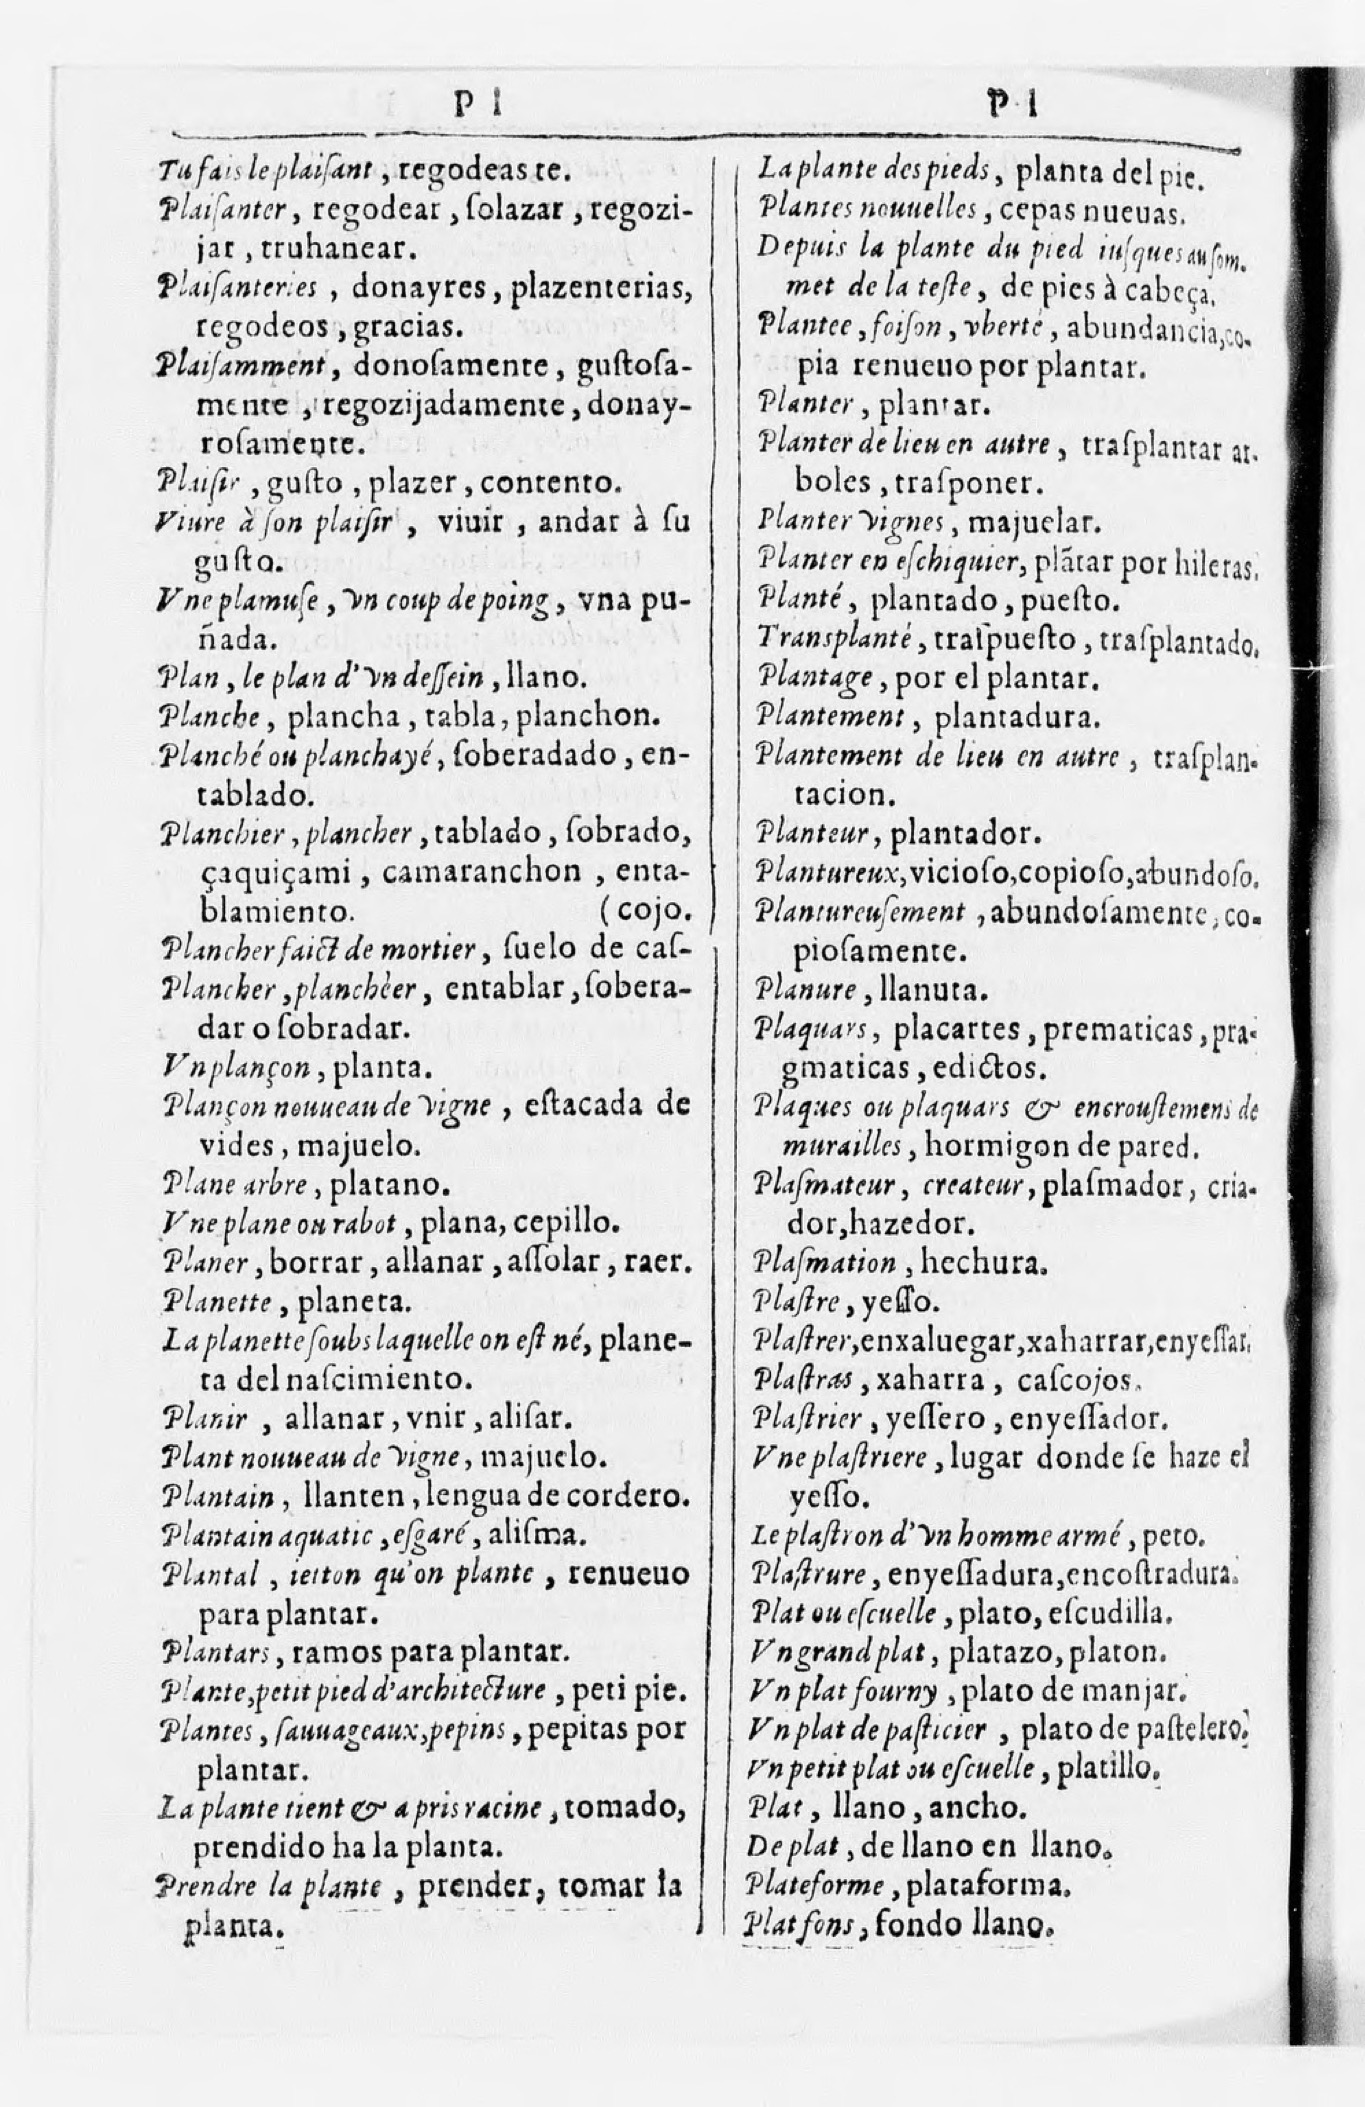 P l
Tu fais le plaiſant, regodeas te.
Plaiſanter, regodear, ſolazar, regozi-
jar, truhanear.
Plaiſanteries, donayres, plazenterias,
regodeos, gracias.
Plaiſamment, donoſamente, guſtoſa-
mente, regozijadamente, donay-
roſamente.
Plaiſir, guſto, plazer, contento.
Viure à ſon plaiſir, viuir, andar à ſu
guſto.
Vne plamuſe, vn coup de poing, vna pu-
ñada.
Plan, le plan d'vn deſſein, llano.
Planche, plancha, tabla, planchon.
Planché ou planchayé, ſoberadado, en-
tablado.
Planchier, plancher, tablado, ſobrado,
çaquiçami, camaranchon, enta-
blamiento. (cojo.
Plancher faict de mortier, ſuelo de caſ-
Plancher, planchèer, entablar, ſobera-
dar o ſobradar.
Vn plançon, planta.
Plançon nouueau de vigne, eſtacada de
vides, majuelo.
Plane arbre, platano.
Vne plane ou rabot, plana, cepillo.
Planer, borrar, allanar, aſſolar, raer.
Planette, planeta.
La planette ſoubs laquelle on eſt né, plane-
ta del naſcimiento.
Planir, allanar, vnir, aliſar.
Plant nouueau de vigne, majuelo.
Plantain, llanten, lengua de cordero.
Plantain aquatic, eſgaré, aliſma.
Plantal, ietton qu'on plante, renueuo
para plantar.
Plantars, ramos para plantar.
Plante, petit pied d'architecture, peti pie.
Plantes, ſauuageaux, pepins, pepitas por
plantar.
La plante tient & a pris racine, tomado,
prendido ha la planta.
Prendre la plante, prender, tomar la
planta.
P l
La plante des pieds, planta del pie.
Plantes nouuelles, cepas nueuas.
Depuis la plante du pied iuſques au ſom-
met de la teſte, de pies à cabeça.
Plantee, foiſon, vberté, abundancia, co-
pia renueuo por plantar.
Planter, plantar.
Planter de lieu en autre, traſplantar ar-
boles, traſponer.
Planter vignes, majuelar.
Planter en eſchiquier, plãtar por hileras.
Planté, plantado, pueſto.
Transplanté, traſpueſto, traſplantado.
Plantage, por el plantar.
Plantement, plantadura.
Plantement de lieu en autre, traſplan-
tacion.
Planteur, plantador.
Plantureux, vicioſo, copioſo, abundoſo.
Plantureuſement, abundoſamente, co-
pioſamente.
Planure, llanura.
Plaquars, placartes, prematicas, pra-
gmaticas, edictos.
Plaques ou plaquars & encrouſtemens de
murailles, hormigon de pared.
Plaſmateur, createur, plaſmador, cria-
dor, hazedor.
Plaſmation, hechura.
Plaſtre, yeſſo.
Plaſtrer, enxaluegar, xaharrar, enyeſſar.
Plaſtras, xaharra, caſcojos.
Plaſtrier, yeſſero, enyeſſador.
Vne plaſtriere, lugar donde ſe haze el
yeſſo.
Le plaſtron d'vn homme armé, peto.
Plaſtrure, enyeſſadura, encoſtradura.
Plat ou eſcuelle, plato, eſcudilla.
Vn grand plat, platazo, platon.
Vn plat fourny, plato de manjar.
Vn plat de paſticier, plato de paſtelero.
Vn petit plat ou eſcuelle, platillo.
Plat, llano, ancho.
De plat, de llano en llano.
Plateforme, plataforma.
Plat fons, fondo llano.